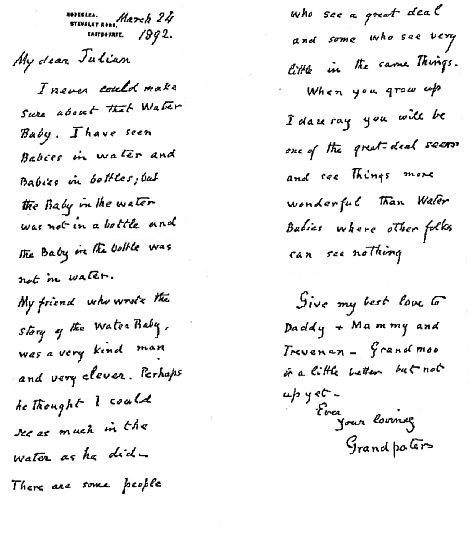 HODESLEA.
STAVELEY ROAD.
EASTBOURNE.
March 24
1892.
My dear Julian
I never could make
sure about that Water
Baby. I have seen
Babies in water and
Babies in bottles; but
the Baby in the water
was not in a bottle and
the Baby in the bottle was
not in water.
My friend who wrote the
story of the Water Baby,
was a very kind man
and very clever. Perhaps
he thought I could
see as much in the
water as he did –
There are some people
who see a great deal
and some who see very
little in the same things.
When you grow up
I dare say you will be
one of the great-deal seers
and see things more
wonderful than Water
Babies where other folks
can see nothing
Give my best love to
Daddy + Mammy and
Trevenen – Grand moo
is a little better but not
up yet –
Ever
your loving
Grandpater